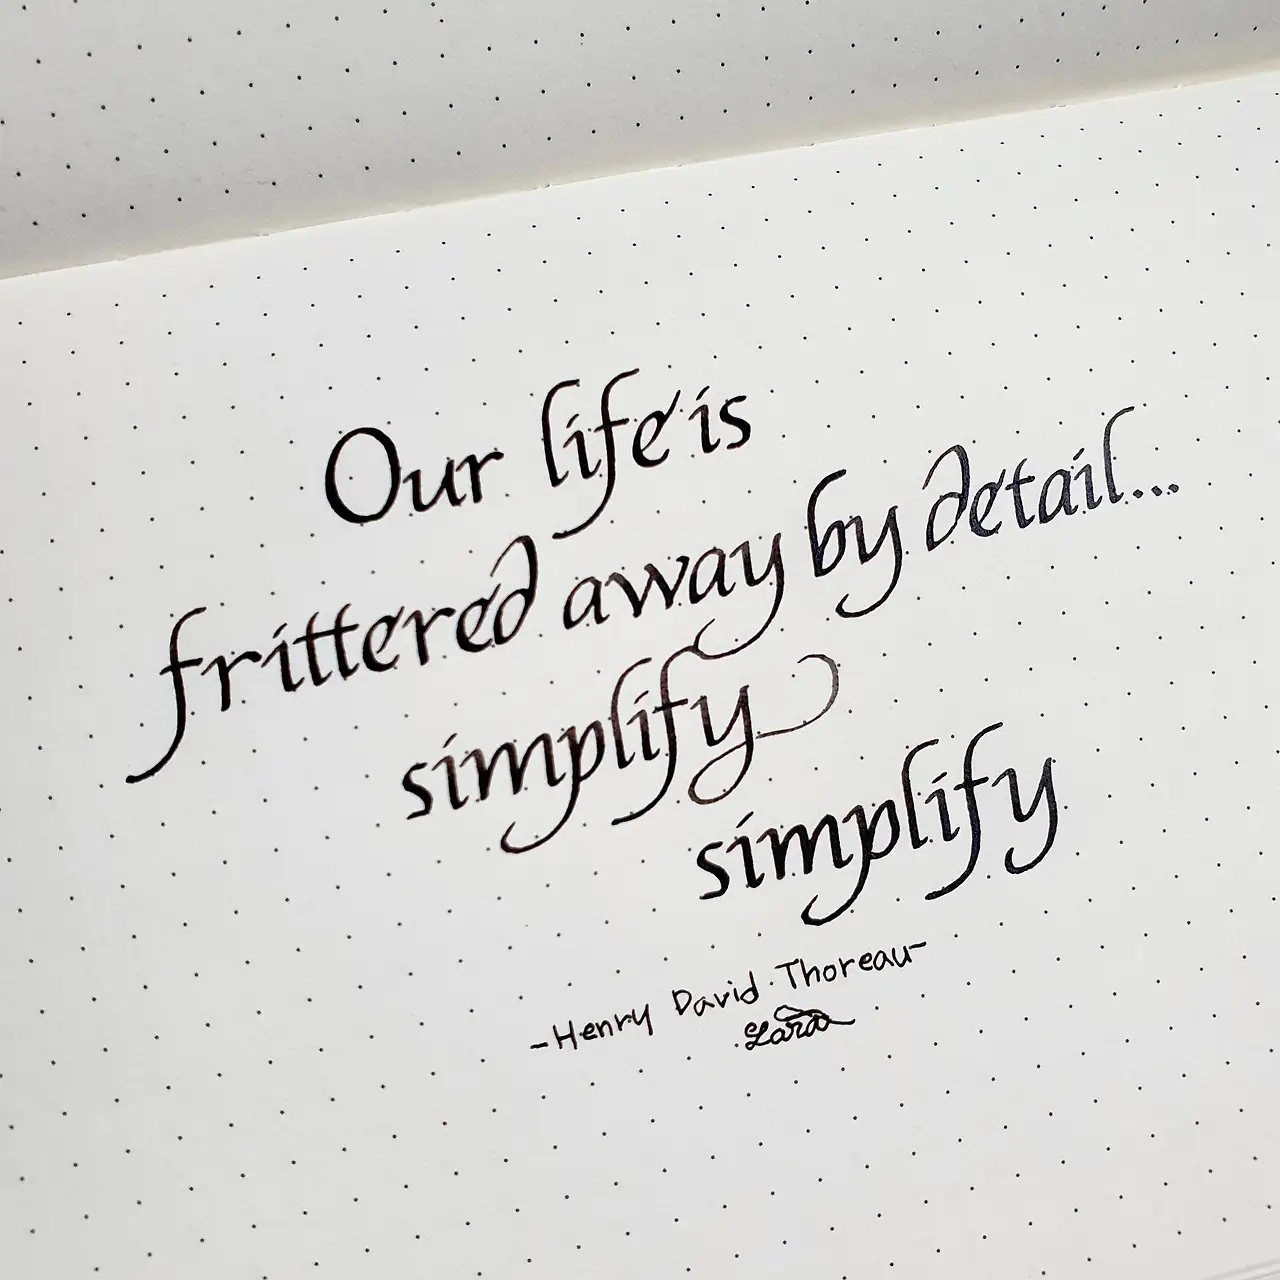 Our life is
frittered away by detail...
simplify
simplify
-Henry David Thoreau-
Lara